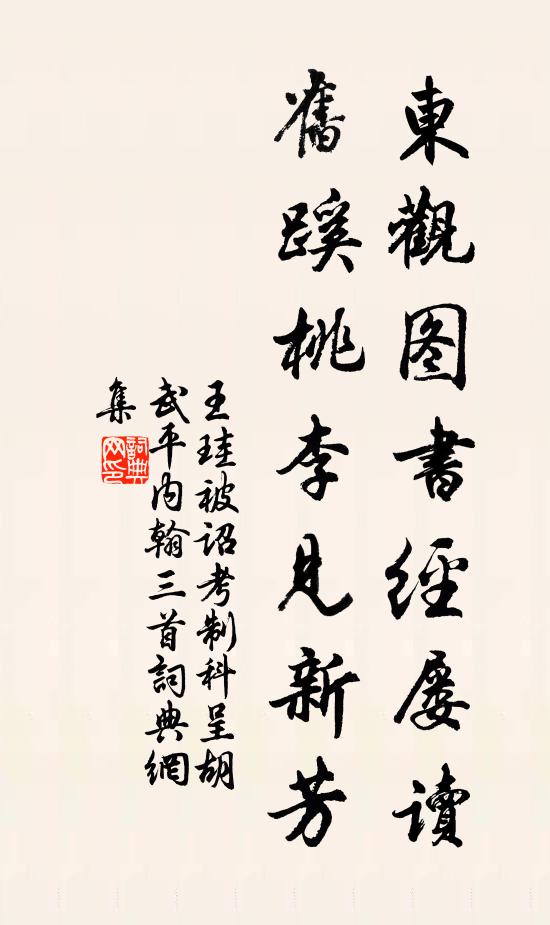 東觀图書經屡讀
舊蹊桃李見新芳
王珪被詔考制科呈胡
武平内翰三首詞典網
集
詞典
网印